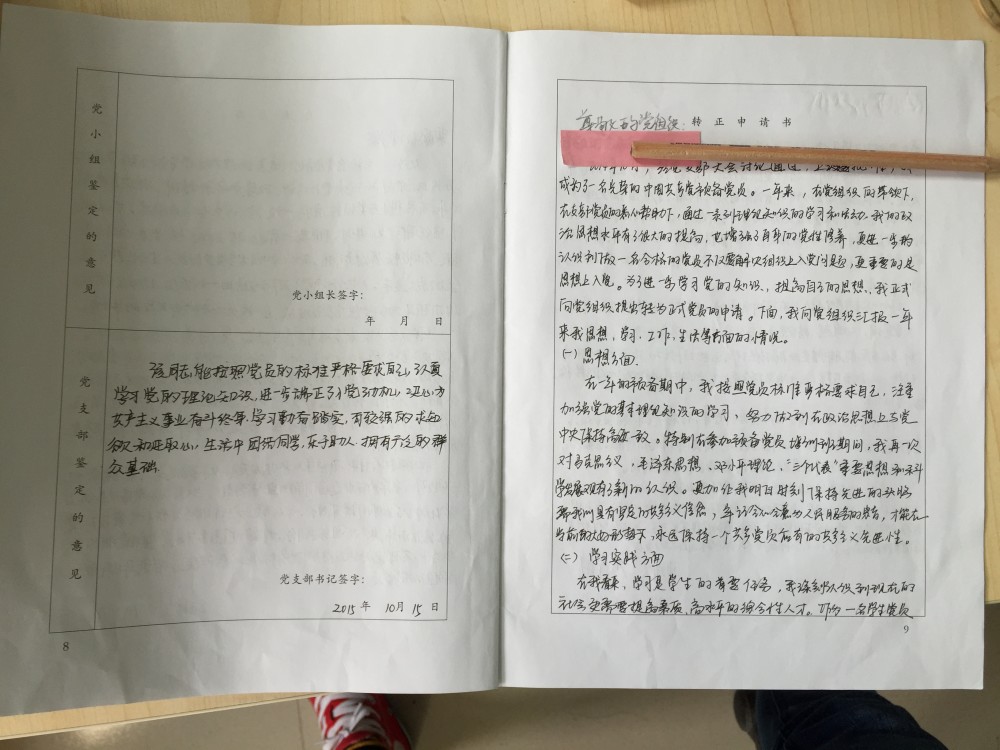 党小组鉴定的意见
党小组长签字:
年 月 日
党支部鉴定的意见
该同志能按照党员的标准严格要求自己,认真
学习党的理论知识,进一步端正了入党动机,决心为
共产主义事业奋斗终身。学习勤奋踏实,有较强的求知
欲和进取心,生活中团结同学,乐于助人,拥有广泛的群
众基础.
党支部书记签字:
2015 年 10 月 15 日
8
尊敬的党组织: 转正申请书
支部大会讨论通过,上级
成为了一名光荣的中国共产党预备党员。一年来,在党组织的带领下,
在支部党员的帮助下,通过一系列理论知识的学习和活动,我的政
治思想水平有了很大的提高,也增强了自身的党性修养,更进一步的
认识到做一名合格的党员不仅要解决组织上入党问题,更重要的是
思想上入党。为了进一步学习党的知识,提高自己的思想,我正式
向党组织提出转为正式党员的申请。下面,我向党组织汇报一年
来我思想,学习,工作,生活等方面的情况。
(一) 思想方面.
在一年的预备期中,我按照党员标准严格要求自己,注重
加强党的基本理论知识的学习、努力做到在政治思想上与党
中央保持高度一致。特别在参加预备党员培训班期间,我再一次
对马克思主义,毛泽东思想,邓小平理论,“三个代表”重要思想和科
学发展观有了新的认识。更加让我明白时刻保持先进的
具有坚定的共产主义信念,为人民服务的宗旨,才能在
当前的大好形势下,永远保持一个共产党员应有的共产主义先进性。
(二) 学习实践方面
在我看来,学习是学生的首要任务,我深刻认识到现在的
社会更需要高素质、高水平的综合性人才。作为一名学生党员
9